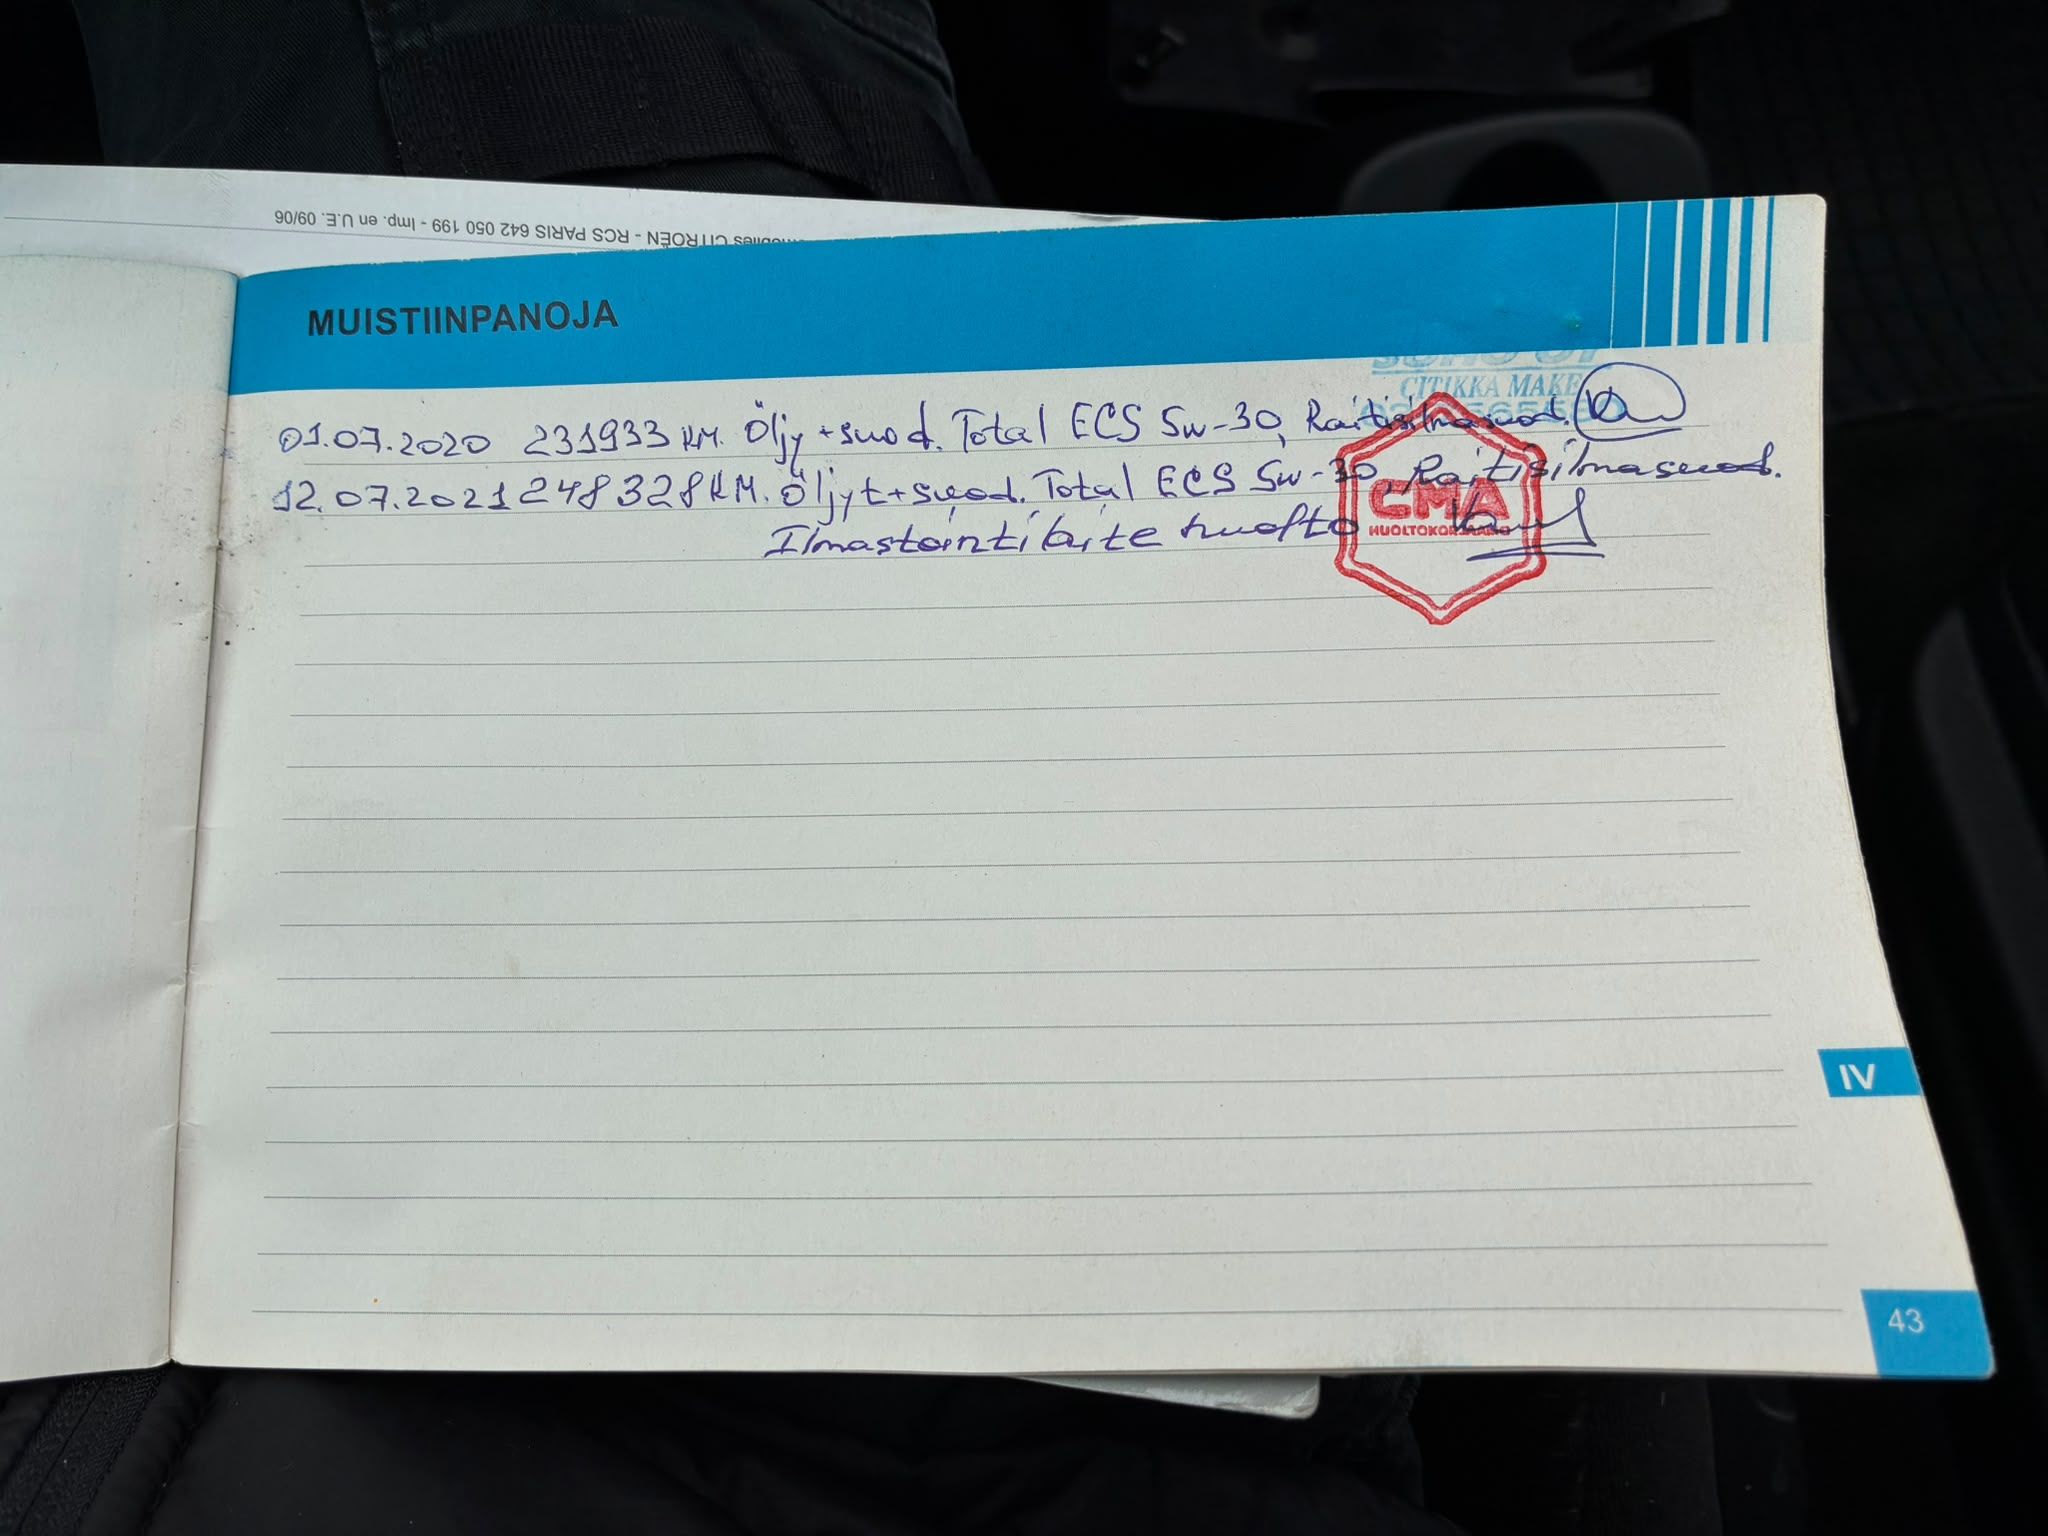 obiles CITROËN - RCS PARIS 642 050 199 - Imp. en U.E. 09/06
MUISTIINPANOJA
CITIKKA MAKE
01.07.2020 231933 KM. Öljy + suod. Total ECS 5w-30, Raitisilmasuod.
12.07.2021 248328 KM. Öljyt + suod. Total ECS 5w-30, Raitisilmasuod.
CMA
HUOLTOKORJAAMO
Ilmastointilaite huolto
IV
43